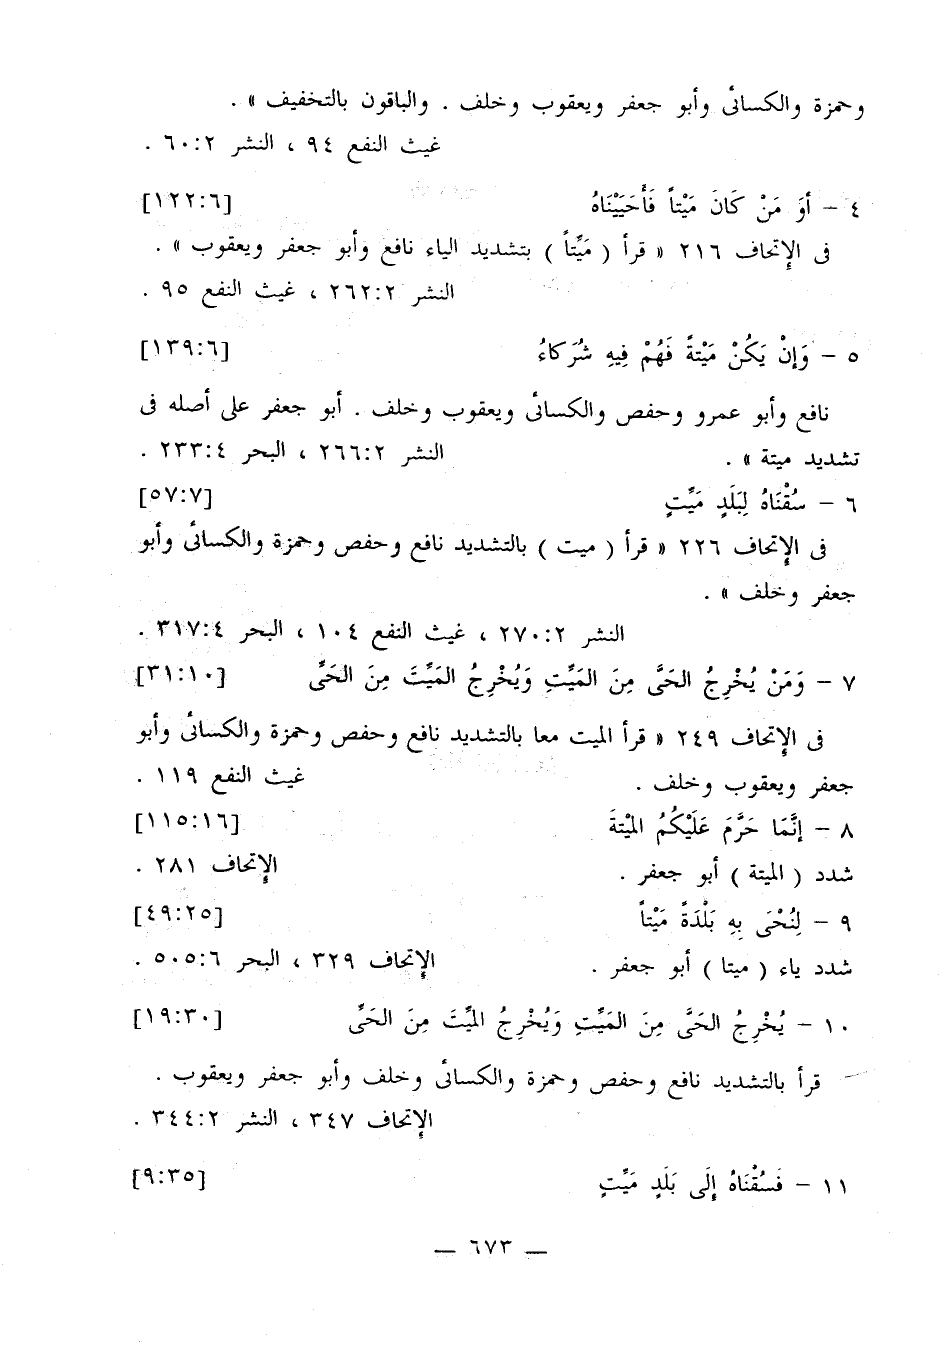 وحمزة والكسائى وأبو جعفر ويعقوب وخلف . والباقون بالتخفيف » .
غيث النفع ٩٤ ، النشر ٢:٦٠ .
٤ – أوَ مَنْ كَانَ مَيْتاً فَأَحَيَيْنَاهُ [٦:١٢٢]
فى الإتحاف ٢١٦ « قرأ ( مَيِّتاً ) بتشديد الياء نافع وأبو جعفر ويعقوب » .
النشر ٢:٢٦٢ ، غيث النفع ٩٥ .
٥ – وَإنْ يَكُنْ مَيْتةً فَهُمْ فِيهِ شُرَكاءُ [٦:١٣٩]
نافع وأبو عمرو وحفص والكسائى ويعقوب وخلف . أبو جعفر على أصله فى
تشديد ميتة » . النشر ٢:٢٦٦ ، البحر ٤:٢٣٣ .
٦ – سُقْنَاهُ لِبَلَدٍ مَيِّتٍ [٧:٥٧]
فى الإتحاف ٢٢٦ « قرأ ( ميت ) بالتشديد نافع وحفص وحمزة والكسائى وأبو
جعفر وخلف » .
النشر ٢:٢٧٠ ، غيث النفع ١٠٤ ، البحر ٤:٣١٧ .
٧ – وَمَنْ يُخْرِجُ الحَىَّ مِنَ المَيِّتِ وَيُخْرِجُ المَيِّتَ مِنَ الحَىِّ [١٠:٣١]
فى الإتحاف ٢٤٩ « قرأ الميت معا بالتشديد نافع وحفص وحمزة والكسائى وأبو
جعفر ويعقوب وخلف . غيث النفع ١١٩ .
٨ – إنَّمَا حَرَّمَ عَلَيْكُمُ المْيْتةَ [١٦:١١٥]
شدد ( الميتة ) أبو جعفر . الإتحاف ٢٨١ .
٩ – لِنُحْىَ بِهِ بَلْدَةً مَيْتاً [٢٥:٤٩]
شدد ياء ( ميتا ) أبو جعفر . الإتحاف ٣٢٩ ، البحر ٦:٥٠٥ .
١٠ – يُخْرِجُ الحَىَّ مِنَ المَيِّتِ وَيُخْرِجُ المْيِّتَ مِنَ الحَىِّ [٣٠:١٩]
قرأ بالتشديد نافع وحفص وحمزة والكسائى وخلف وأبو جعفر ويعقوب .
الإتحاف ٣٤٧ ، النشر ٢:٣٤٤ .
١١ – فَسُقْنَاهُ إلَى بَلَدٍ مَيِّتٍ [٣٥:٩]
— ٦٧٣ —